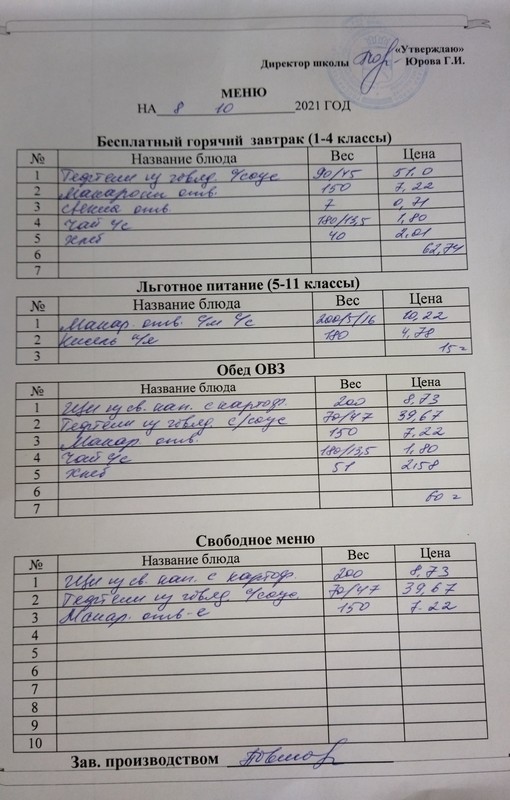 «Утверждаю»
Директор школы Юрова Г.И.
МЕНЮ
НА 8 10 2021 ГОД
Бесплатный горячий завтрак (1-4 классы)
№ Название блюда Вес Цена
1 Тефтели из говяд. с/соус 90/45 51.0
2 Макароны отв. 150 7,22
3 свекла отв 7 0,71
4 Чай с/с 180/13,5 1,80
5 хлеб 40 2,01
6 62,74
7
Льготное питание (5-11 классы)
№ Название блюда Вес Цена
1 Макар. отв. с/м с/с 200/5/16 10,22
2 Кисель п/я 180 4,78
3 15=
Обед ОВЗ
№ Название блюда Вес Цена
1 Щи из св. кап. с картоф. 200 8,73
2 Тефтели из говяд. с/соус 70/47 39,67
3 Макар. отв. 150 7.22
4 Чай с/с 180/13,5 1,80
5 Хлеб 51 2,58
6 60=
7
Свободное меню
№ Название блюда Вес Цена
1 Щи из св. кап. с картоф. 200 8,73
2 Тефтели из говяд. с/соус 70/47 39,67
3 Макар. отв-е 150 7.22
4
5
6
7
8
9
10
Зав. производством